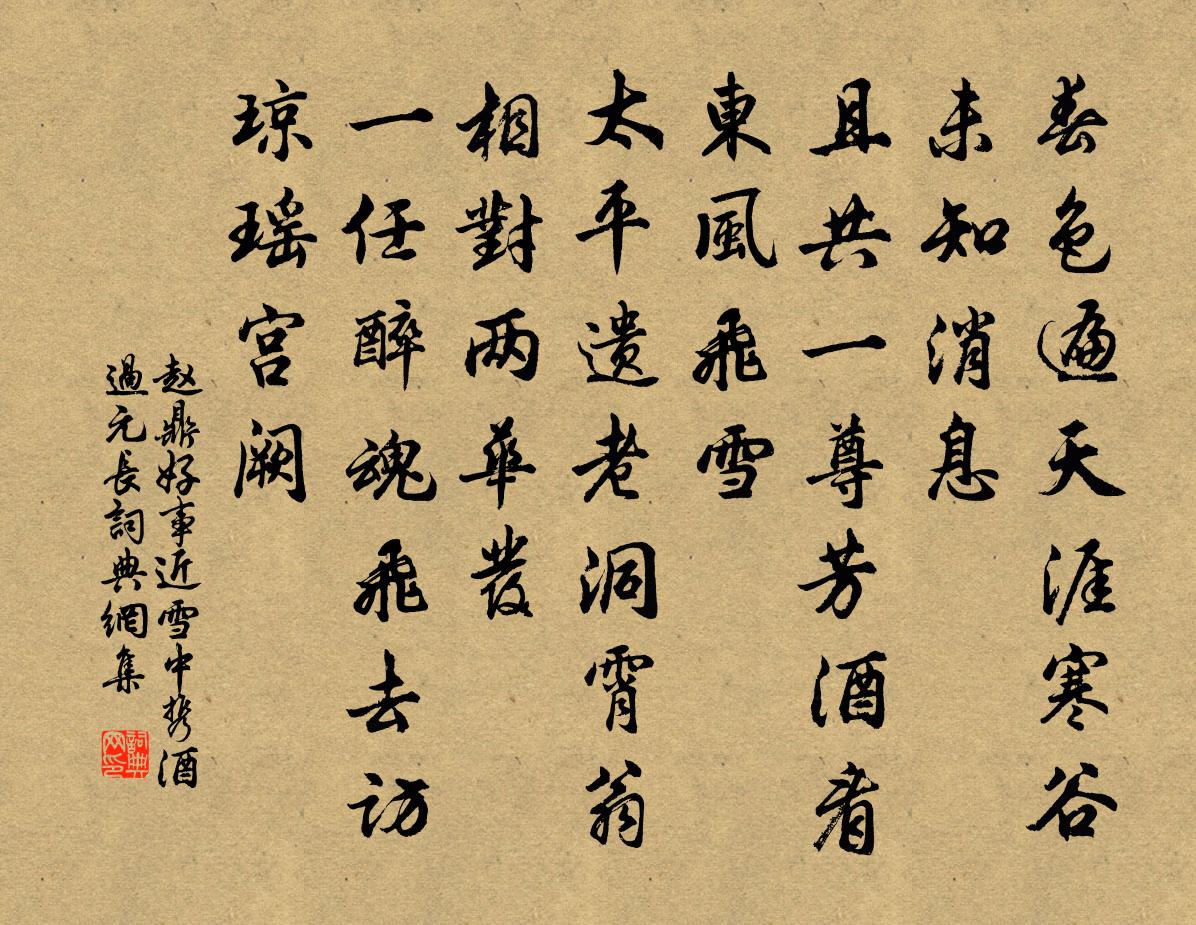 春色遍天涯寒谷
未知消息
且共一尊芳酒看
東風飛雪
太平遺老洞霄翁
相對两華發
一任醉魂飛去訪
琼瑶宫阙
赵鼎好事近雪中携酒
過元長詞典網集
詞典网印